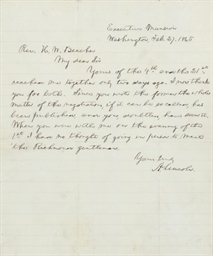 Executive Mansion
Washington, Feb. 27, 1865
Rev. H. W. Beecher
My dear Sir
Yours of the 4th and the 21st
reached me together only two days ago. I now thank
you for both. Since you wrote the former the whole
matter of the negotiation, if it can be so called, has
been published, and you doubtless have seen it.
When you were with me on the evening of the
1st I had no thought of going in person to meet
the Richmond gentlemen.
Yours truly
A. Lincoln